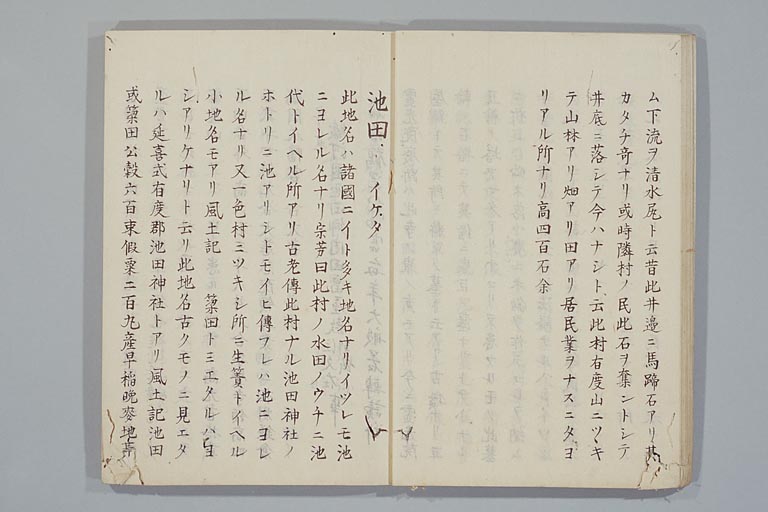 ム下流ヲ清水尻ト云昔此井邊ニ馬蹄石アリ其
カタチ奇ナリ或時隣村ノ民此石ヲ奪ントシテ
井底ニ落シテ今ハナシト云此村有度山ニツヽキ
テ山林アリ畑アリ田アリ居民業ヲナスニタヨ
リアル所ナリ高四百石余
池田 イケダ
此地名ハ諸國ニイト多キ地名ナリイツレモ池
ニヨレル名ナリ宗芳曰此村ノ水田ノウチニ池
代トイヘル所アリ古老傳此村ナル池田神社ノ
ホトリニ池アリシトモイヒ傳フレハ池ニヨレ
ル名ナリ又一色村ニツキシ所ニ生簀トイヘル
小地名モアリ風土記 築田トミエタルハヨ
シアリケナリト云リ此地名古クモノニ見エタ
ルハ延喜式有度郡池田神社トアリ風土記池田
或築田公穀六百束假粟二百丸産早稲晩麥地